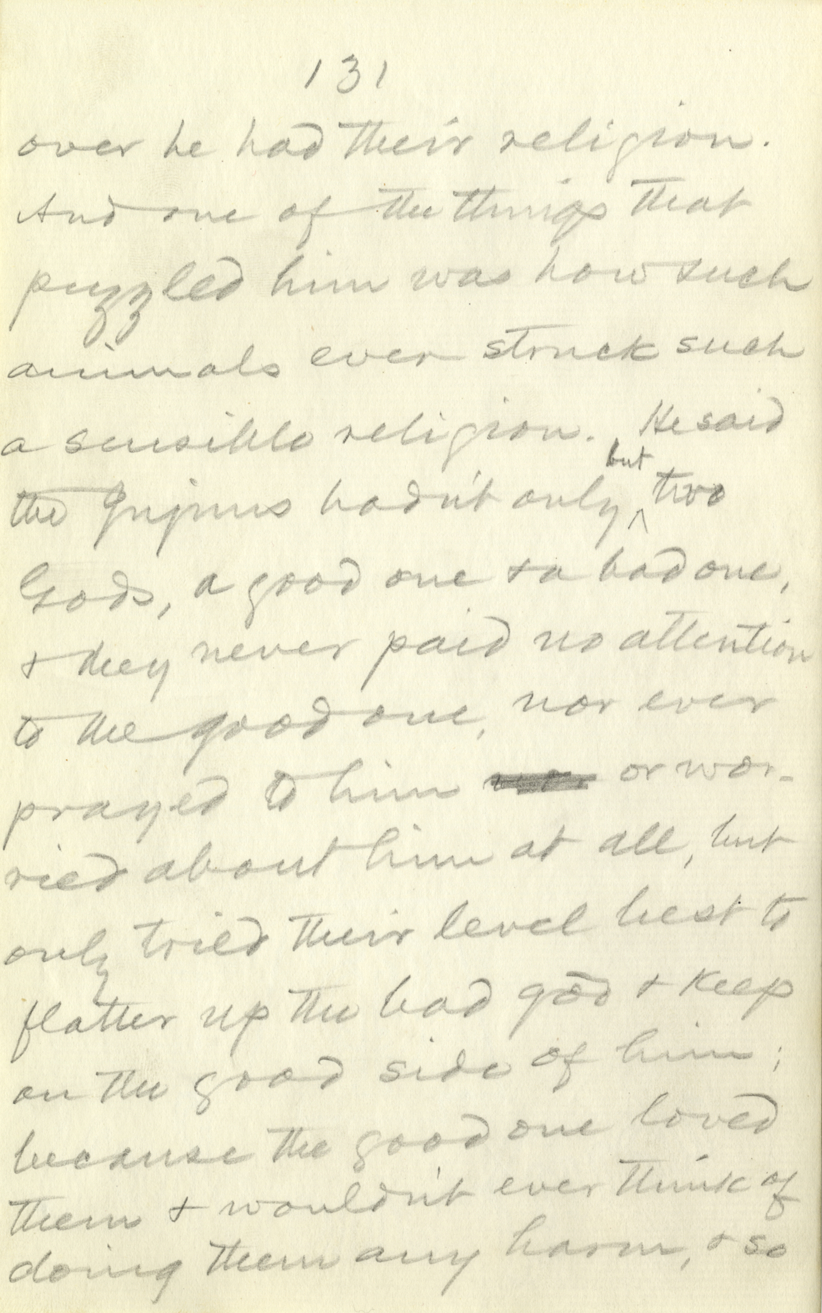 131
over he had their religion.
And one of the things that
puzzled him was how such
animals ever struck such
a sensible religion. He said
the Injuns hadn't only but two
Gods, a good one & a bad one,
& they never paid no attention
to the good one, nor ever
prayed to him or wor-
ried about him at all, but
only tried their level best to
flatter up the bad god & keep
on the good side of him;
because the good one loved
them & wouldn't ever think of
doing them any harm, & so